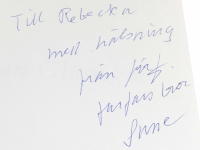 Till Rebecka
med hälsning
från
farfars bror
Sune